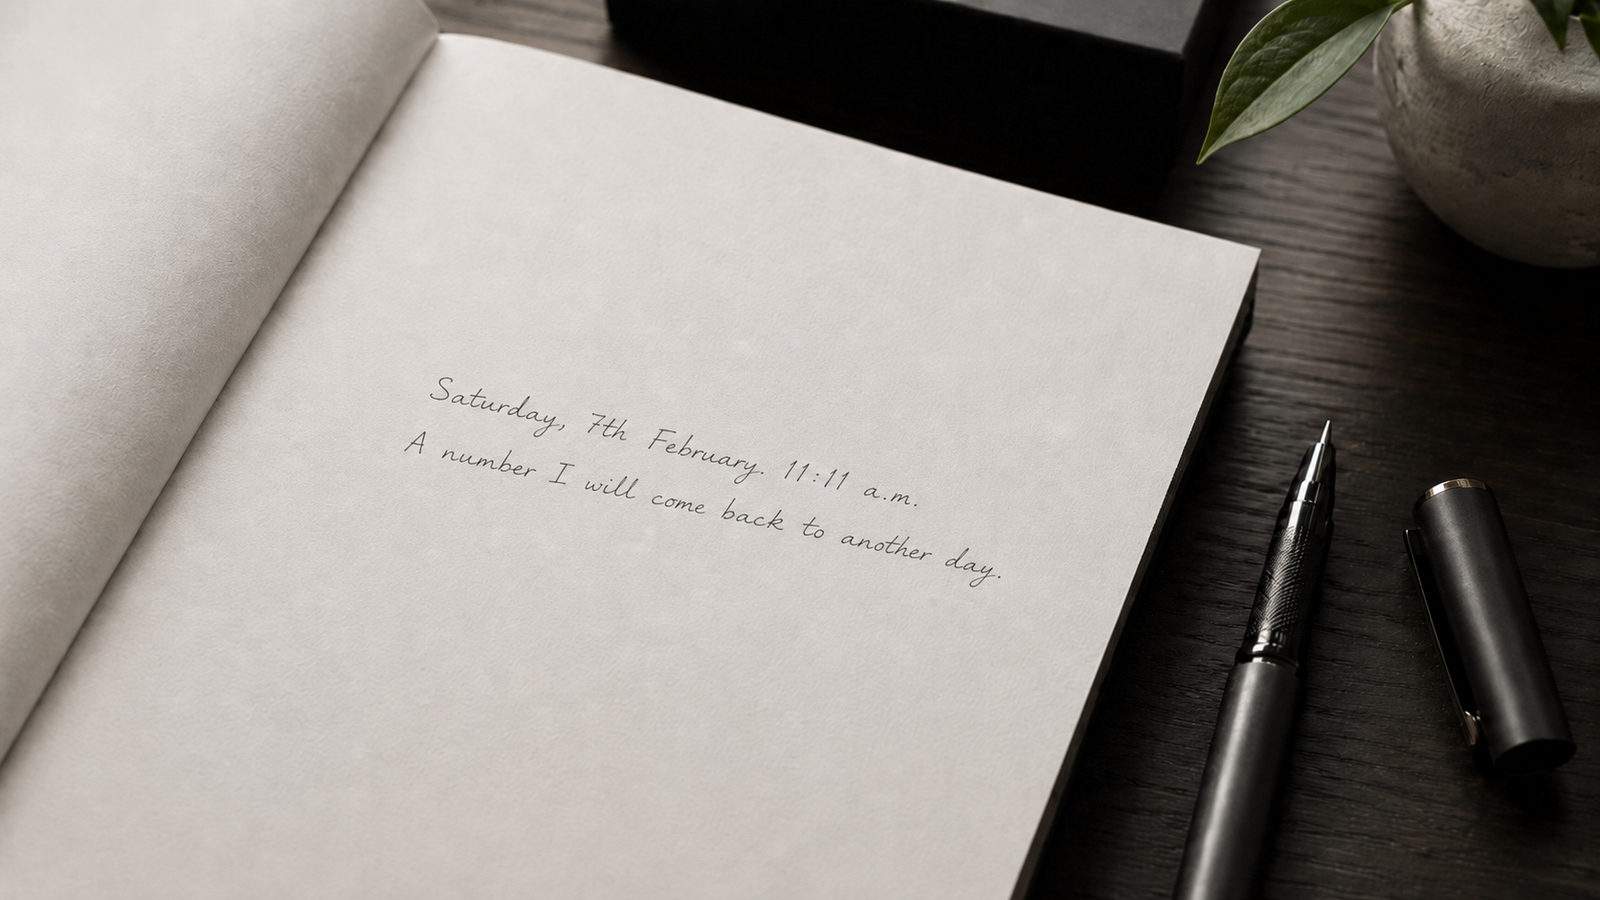 Saturday, 7th February. 11:11 a.m.
A number I will come back to another day.